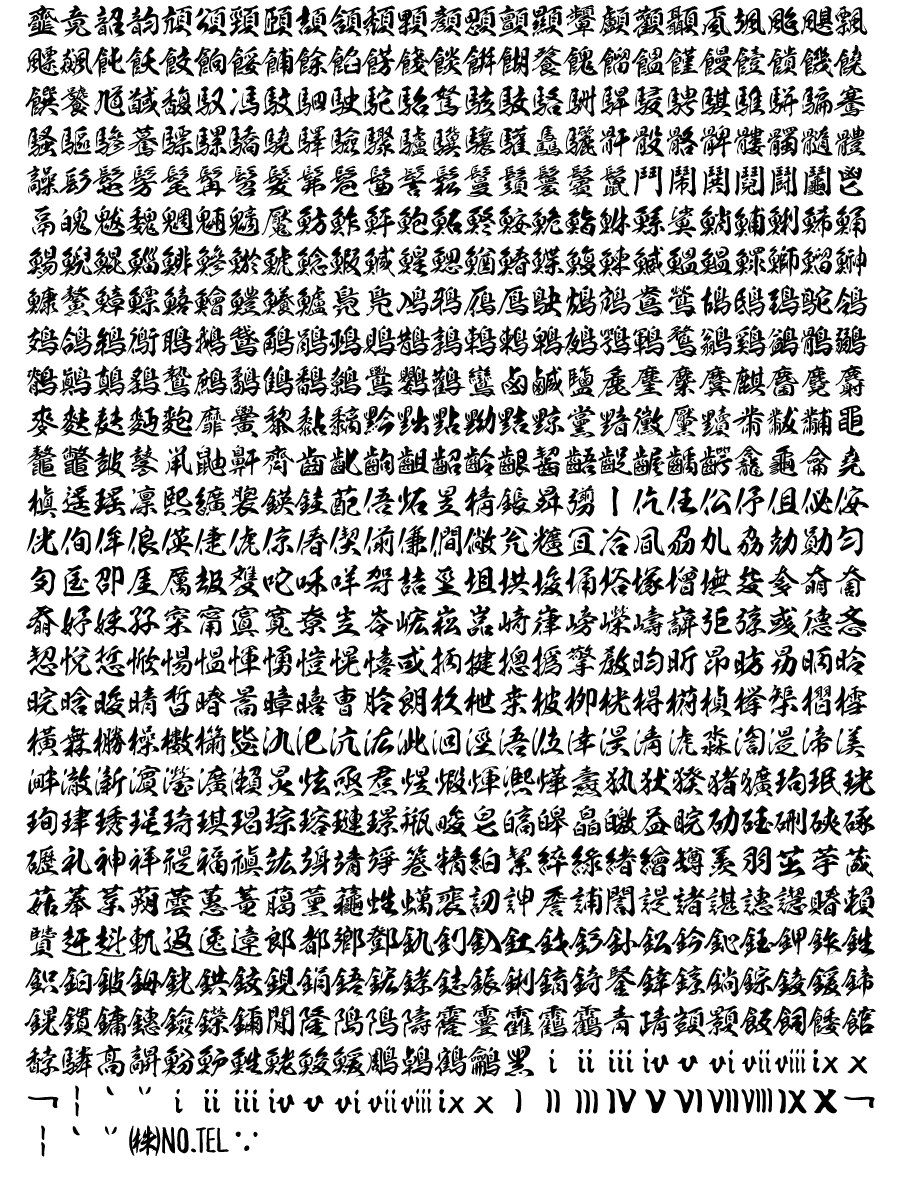 韲竟韶韵頏頌頸頤頡頷頽顆顏顋顫顯顰顱顴顳颪颯颱颶飄
飃飆飩飫餃餉餒餔餘餡餝餞餤餠餬餮餽餾饂饉饅饐饋饑饒
饌饕馗馘馥馭馮馼駟駛駝駘駑駭駮駱駲駻駸騁騏騅駢騙騫
騷驅驂驀驃騾驕驍驛驗驟驢驥驤驩驫驪骭骰骼髀髏髑髓體
髞髟髢髣髦髯髫髮髴髱髷髻鬆鬘鬚鬟鬢鬣鬥鬧鬨鬩鬪鬮鬯
鬲魄魃魏魍魎魑魘魴鮓鮃鮑鮖鮗鮟鮠鮨鮴鯀鯊鮹鯆鯏鯑鯒
鯣鯢鯤鯔鯡鰺鯲鯱鯰鰕鰔鰉鰓鰌鰆鰈鰒鰊鰄鰮鰛鰥鰤鰡鰰
鱇鰲鱆鰾鱚鱠鱧鱶鱸鳧鳬鳰鴉鴈鳫鴃鴆鴪鴦鶯鴣鴟鵄鴕鴒
鵁鴿鴾鵆鵈鵝鵞鵤鵑鵐鵙鵲鶉鶇鶫鵯鵺鶚鶤鶩鶲鷄鷁鶻鶸
鶺鷆鷏鷂鷙鷓鷸鷦鷭鷯鷽鸚鸛鸞鹵鹹鹽麁麈麋麌麒麕麑麝
麥麩麸麪麭靡黌黎黏黐黔黜點黝黠黥黨黯黴黶黷黹黻黼黽
鼇鼈皷鼕鼡鼬鼾齊齒齔齣齟齠齡齦齧齬齪齷齲齶龕龜龠堯
槇遙瑤凜熙纊褜鍈銈蓜俉炻昱棈鋹曻彅丨仡仼伀伃伹佖侒
侊侚侔俍偀倢俿倞偆偰偂傔僴僘兊兤冝冾凬刕劜劦勀勛匀
匇匤卲厓厲叝﨎咜咊咩哿喆坙坥垬埈埇﨏塚增墲夋奓奛奝
奣妤妺孖寀甯寘寬尞岦岺峵崧嵓﨑嵂嵭嶸嶹巐弡弴彧德忞
恝悅悊惞惕愠惲愑愷愰憘戓抦揵摠撝擎敎昀昕昻昉昮昞昤
晥晗晙晴晳暙暠暲暿曺朎朗杦枻桒柀栁桄棏﨓楨﨔榘槢樰
橫橆橳橾櫢櫤毖氿汜沆汯泚洄涇浯涖涬淏淸淲淼渹湜渧渼
溿澈澵濵瀅瀇瀨炅炫焏焄煜煆煇凞燁燾犱犾猤猪獷玽珉珖
珣珒琇珵琦琪琩琮瑢璉璟甁畯皂皜皞皛皦益睆劯砡硎硤硺
礰礼神祥禔福禛竑竧靖竫箞精絈絜綷綠緖繒罇羡羽茁荢荿
菇菶葈蒴蕓蕙蕫﨟薰蘒﨡蠇裵訒訷詹誧誾諟諸諶譓譿賰賴
贒赶﨣軏﨤逸遧郞都鄕鄧釚釗釞釭釮釤釥鈆鈐鈊鈺鉀鈼鉎
鉙鉑鈹鉧銧鉷鉸鋧鋗鋙鋐﨧鋕鋠鋓錥錡鋻﨨錞鋿錝錂鍰鍗
鎤鏆鏞鏸鐱鑅鑈閒隆﨩隝隯霳霻靃靍靏靑靕顗顥飯飼餧館
馞驎髙髜魵魲鮏鮱鮻鰀鵰鵫鶴鸙黑ⅰⅱⅲⅳⅴⅵⅶⅷⅸⅹ
￢￤＇＂ⅰⅱⅲⅳⅴⅵⅶⅷⅸⅹⅠⅡⅢⅣⅤⅥⅦⅧⅨⅩ￢
￤＇＂㈱NO.TEL∵